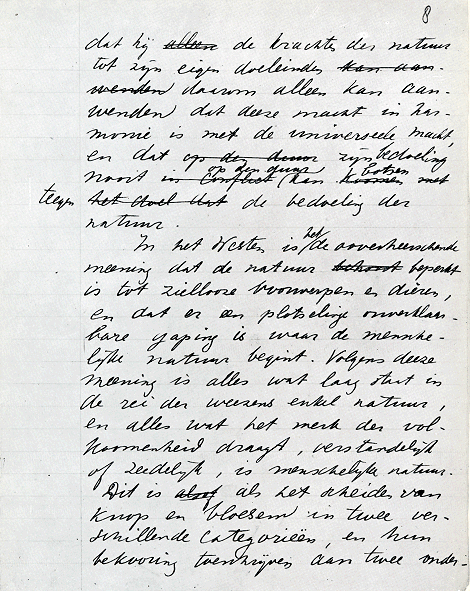 8
dat hij alleen de krachten der natuur
tot zijn eigen doeleinden kan aan-
wenden daarom alleen kan aan-
wenden dat deeze macht in har-
monie is met de universeele macht,
en dat op den duur zijn bedoeling
op den duur botsen
nooit in conflict kan koomen met
teegen het doel dat de bedoeling der
natuur.
In het Westen is het de ooverheerschende
meening dat de natuur behoort beperkt
is tot ziellooze voorwerpen en dieren,
en dat er een plotselinge onverklaar-
bare gaping is waar de mensche-
lijke natuur begint. Volgens deeze
meening is alles wat laag staat in
de rei der weezens enkel natuur,
en alles wat het merk der vol-
koomenheid draagt, verstandelijk
of zeedelijk, is menschelijke natuur.
Dit is alsof als het scheiden van
knop en bloesem in twee ver-
schillende categorieën, en hun
bekooring toeschrijven aan twee onder-